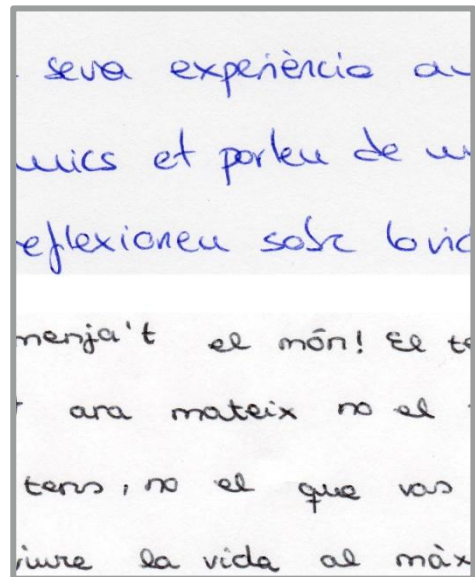 seva experiència a
mics et parleu de
eflexioneu sobre la vid
menja't el món! El te
ara mateix no el
tens, no el que vas
viure la vida al màx